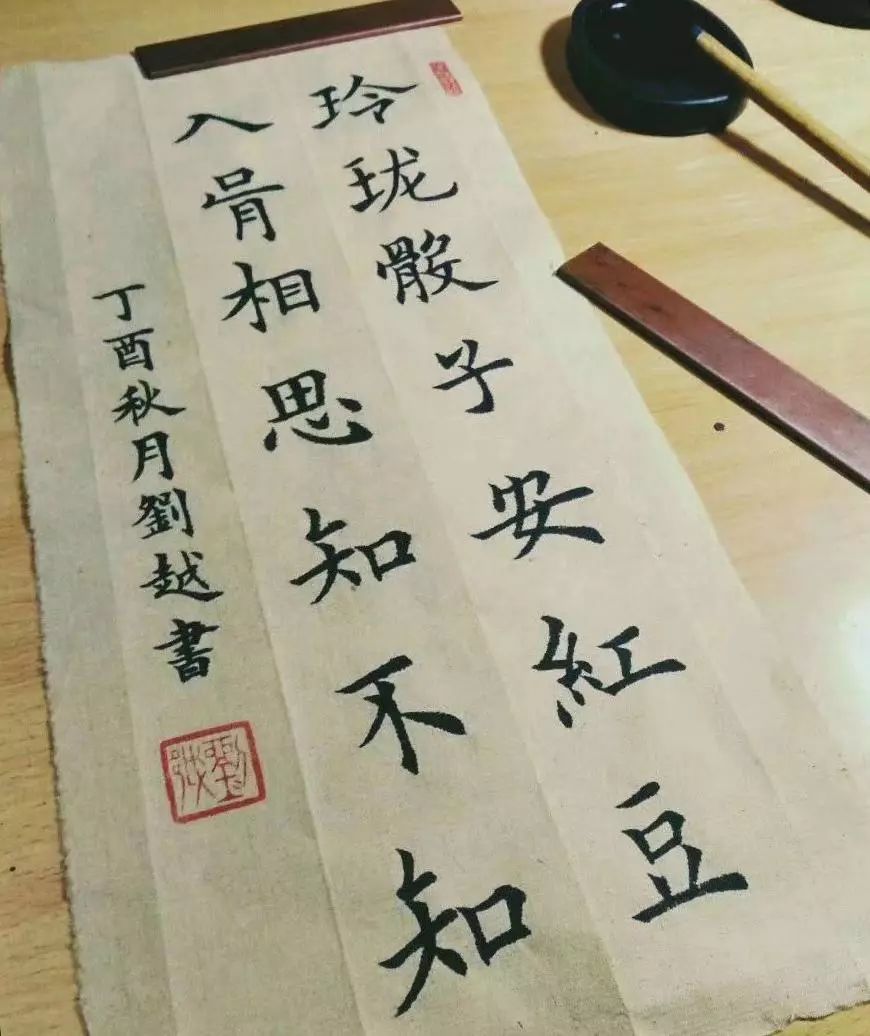 玲珑骰子安紅豆
入骨相思知不知
丁酉秋月劉越書